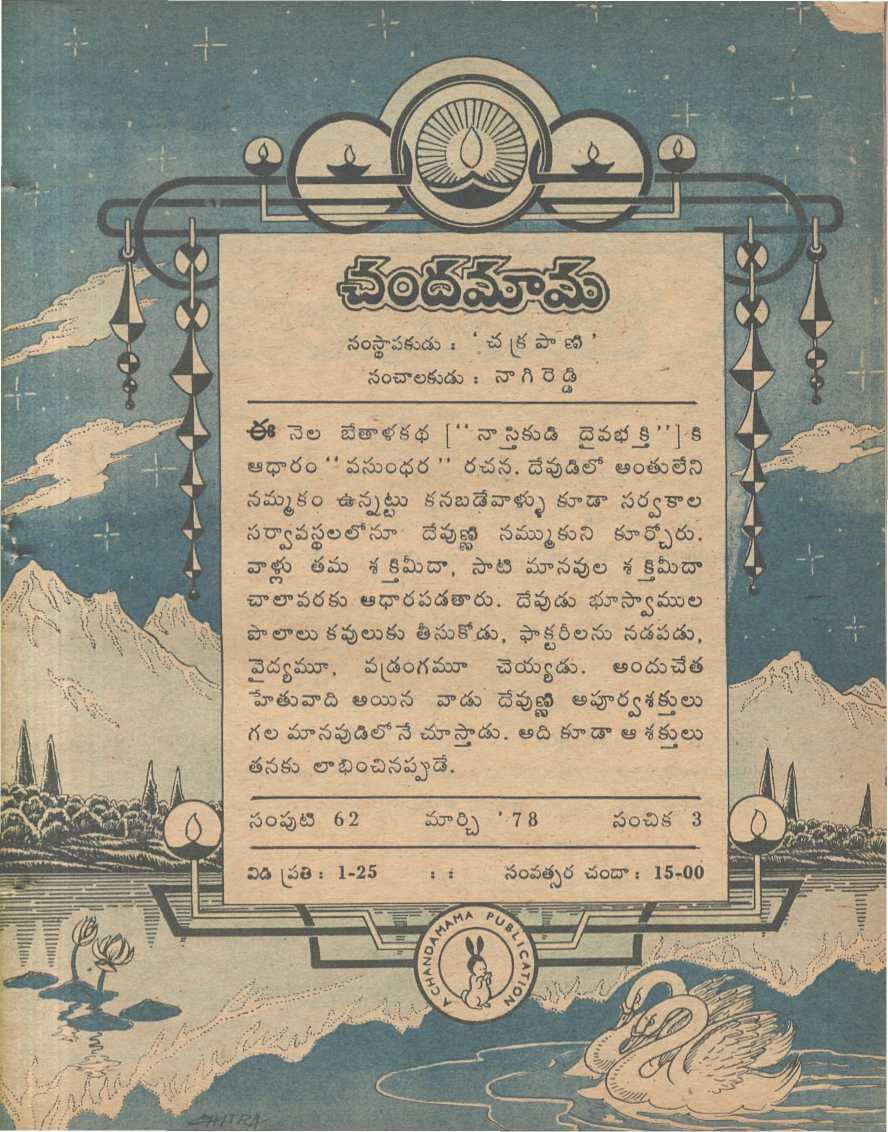 చందమామ
సంస్థాపకుడు : ' చ క్ర పా ణి '
సంచాలకుడు : నా గి రె డ్డి
ఈ నెల బేతాళకథ [‘‘ నాస్తికుడి దైవభక్తి ’’] కి
ఆధారం ‘‘ వసుంధర ’’ రచన. దేవుడిలో అంతులేని
నమ్మకం ఉన్నట్టు కనబడేవాళ్ళు కూడా సర్వకాల
సర్వావస్థలలోనూ దేవుణ్ణి నమ్ముకుని కూర్చోరు.
వాళ్లు తమ శక్తిమీదా, సాటి మానవుల శక్తిమీదా
చాలావరకు ఆధారపడతారు. దేవుడు భూస్వాముల
పొలాలు కవులుకు తీసుకోడు, ఫాక్టరీలను నడపడు,
వైద్యమూ, వడ్రంగమూ చెయ్యడు. అందుచేత
హేతువాది అయిన వాడు దేవుణ్ణి అపూర్వశక్తులు
గల మానవుడిలోనే చూస్తాడు. అది కూడా ఆ శక్తులు
తనకు లాభించినప్పుడే.
సంపుటి 62 మార్చి '78 సంచిక 3
విడి ప్రతి : 1-25 : : సంవత్సర చందా : 15-00
A CHANDAMAMA PUBLICATION
CHITRA